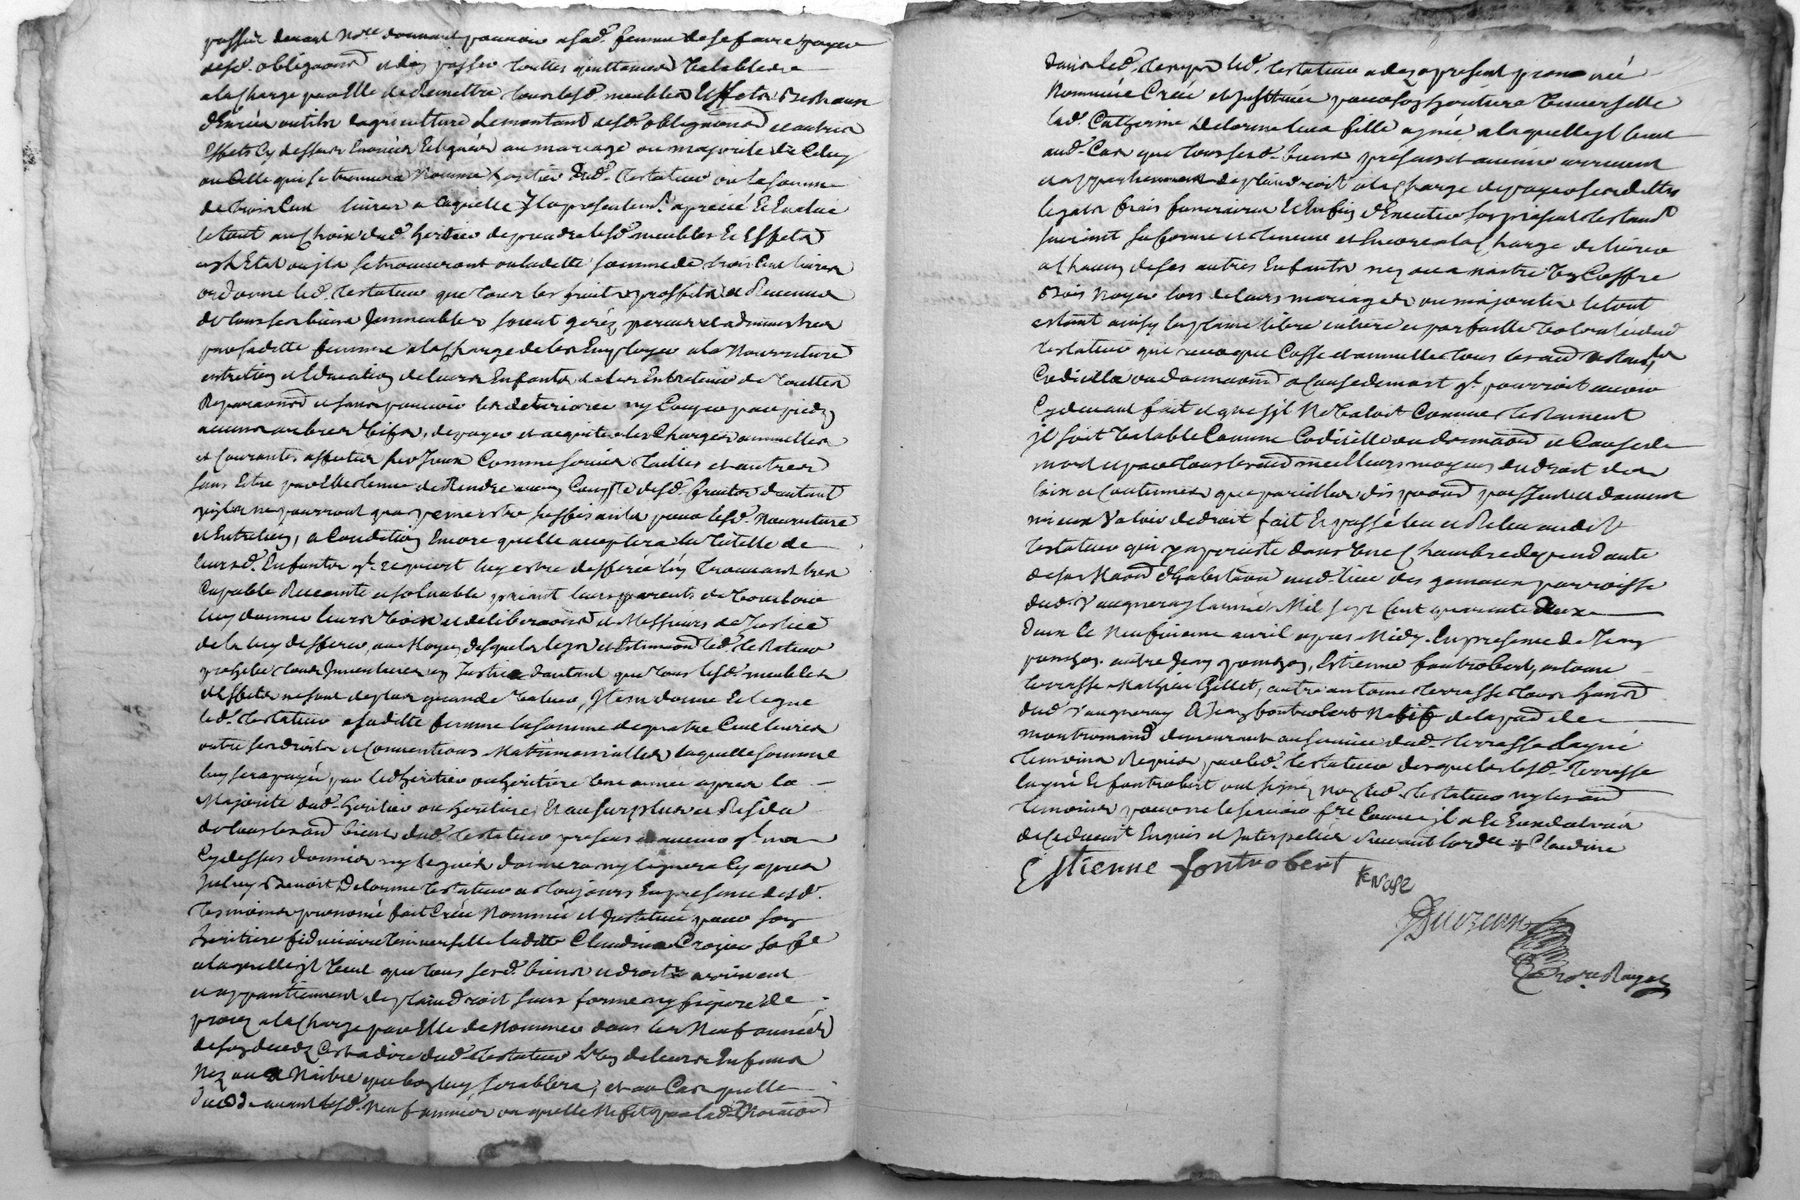 passées devant no.re donnant pouvoir a sad. femme de se faire payer
desd. obligaons et den passer touttes quittances valables
a la charge par elle de remettre tous lesd. meubles effets bestiaux
denrées outils dagriculture le montant desd. obligaons et autres
effets cy dessus enoncés et legués au mariage ou majorité de celuy
ou celle qui se trouvera nommé heritier dud. testateur ou la somme
de trois cent livres a laquelle il a presentement apretié et evalué
le tout au choix dud. heritier de prendre lesd. meubles et effets
en letat ou ils se trouveront ou ladette somme de trois cent livres
ordonne led. testateur que tous les fruits proffits et revenus
de tous ses biens immeubles soient gérés perçus et administrés
par sadette femme a la charge de les employer a la nourriture
entretien et education de leurs enfants de les entretenir de touttes
reparaons et sans pouvoir les deteriorer ny couper par pied
aucuns arbres vifs, de payer et acquitter les charges annuelles
et courantes affectées sur iceux comme servis tailles et autres
sans estre par elle tenue de rendre aucun compte desd. fruits dautant
quils ne pourront qua peine estre suffisants pour lesd. nourriture
et entretien, a condition encore quelle acceptera la tutelle de
leursd. enfants qt. requiert luy estre defferée luy trouvant tres
capable ressente et solvable priant leurs parents de vouloir
luy donner leurs voix et deliberaons et messieurs de justice
de la luy defferer, au moyen desquelles led. testateur
prohibe tous inventaires en justice dautant que tous lesd. meubles
et effets ne sont de plus grande valeur, Item donne et legue
led. testateur a sadette femme la somme de quatre cent livres
outre ses droits et conventions matrimonialles laquelle somme
luy sera payée par led. heritier ou heritiere une année apres la
majorité dud. heritier ou heritiere, et au surplus et residu
de tous lesd. biens dud. testateur presens et avenir qt. na
cy dessus donnés ny legués donnera ny leguera cy apres
Iceluy Benoit Delorme testateur a toujours en presence desd.
tesmoins prenommé fait créé nommée et instituée pour son
heritiere fiduciaire universelle ladette Claudine Crozier sa fe
a laquelle il veut que tous sesd. biens et droits arrivent
et appartiennent de plain droit sans forme ny figure de
procez a la charge par elle de nommer dans les neuf années
de son deces cestadire dud. testateur lun de leurs enfans
nez ou a naitre que bon luy semblera, et au cas quelle
deceda avant lesd. neuf années ou quelle ne fit pas lad. nominaon
dans led. temps led. testateur a dez a present prenommé
nommée créée et instituée pour son heritiere universelle
lad. Catherine Delorme leur fille aynée a laquelle il veut
aud. cas que tous sesd. biens presens et avenir arrivent
et appartiennent de plain droit a la charge de payer ses dettes
legats frais funeraires et enfin dexecuter son present testament
suivant sa forme et teneur et encore a la charge de livrer
a chacun de ses autres enfants nez ou a naistre un coffre
bois noyer lors de leurs mariages ou majorités le tout
estant ainsy la plaine libre entiere et parfaitte volonté dud
testateur qui revoque casse et annulle tous testaments
codicilles ou donnaons a cause de mort qt. pourroit avoir
cy devant fait et que sil ne valoit comme testament
il soit valable comme codicille ou donnaon a cause de
mort et par tous meilleurs moyens du droit des
loix et coutumes que pareilles dispoons puissent et doivent
mieux valoir de droit fait et passé leu et releu aud.t
testateur qui y a persisté dans une chambre dependante
de sa maon dhabitaon aud. lieu des gemeaux parroisse
dud. Vaugneray lannée mil sept cent quarante deux
Dans Le neufvieme avril apres midy. En presence de Jean
ponson autre Jean ponson, Estienne fontrobert, antoine
terrasse Mathieu Gillet, autre antoine terrasse tous habts
dud. Vaugneray & Jean fontrobert natif de la par.d de
montromand demeurant au service dud. terrasse laynè
temoins requis par led. testateur desquels lesd. terrasse
layné et fontrobert ont signé non led. testateur ny les aut
temoins pour ne le sçavoir f.re comme il a et ont declaré
de ce deuemt enquis et interpellés suivant lordce + Claudine
Estienne fontrobert terase
no.re Royal